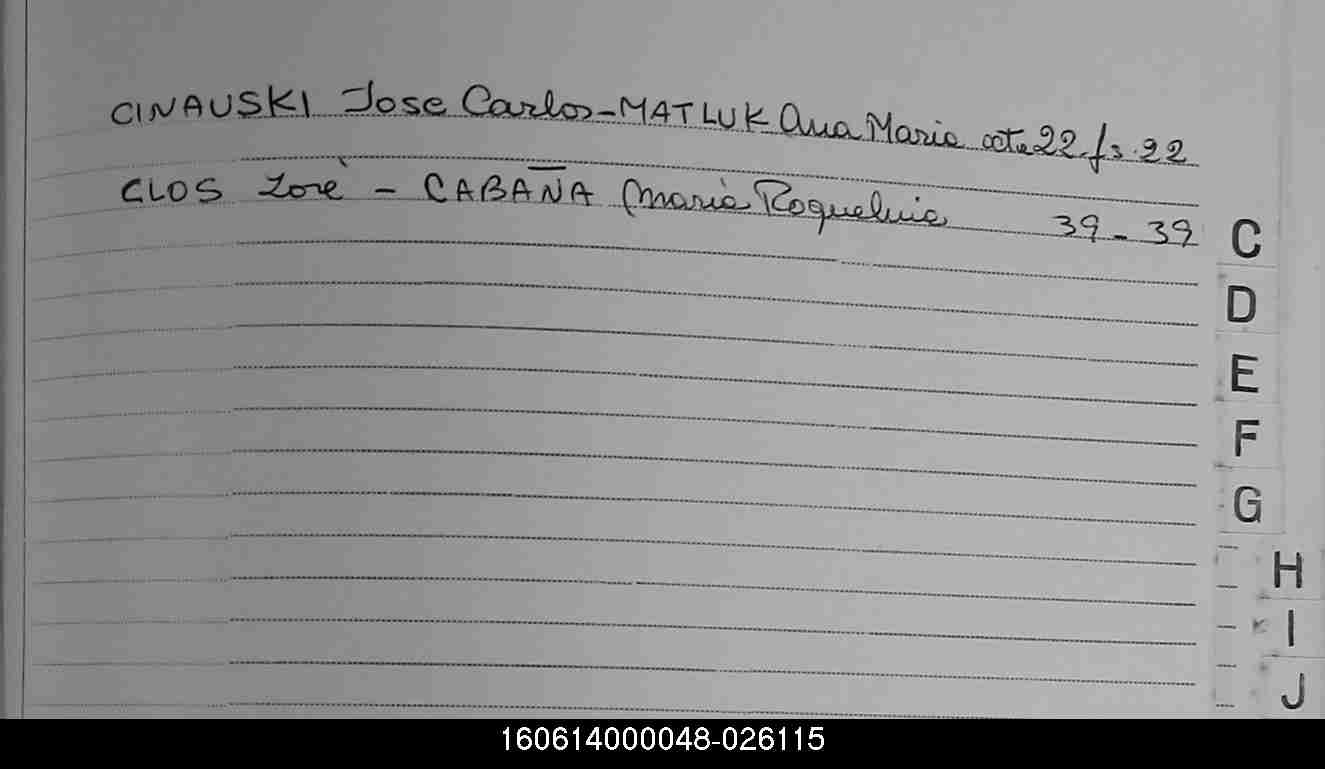 CINAUSKI Jose Carlos - MATLUK Ana Maria acta 22 fs. 22
CLOS José - CABAÑA Maria Roquelina 39 - 39
C
D
E
F
G
H
I
J
160614000048-026115